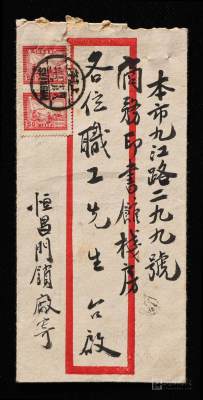 本市九江路二九九號
商務印書館棧房
各位職工先生台啟
恒昌門鎖廠寄